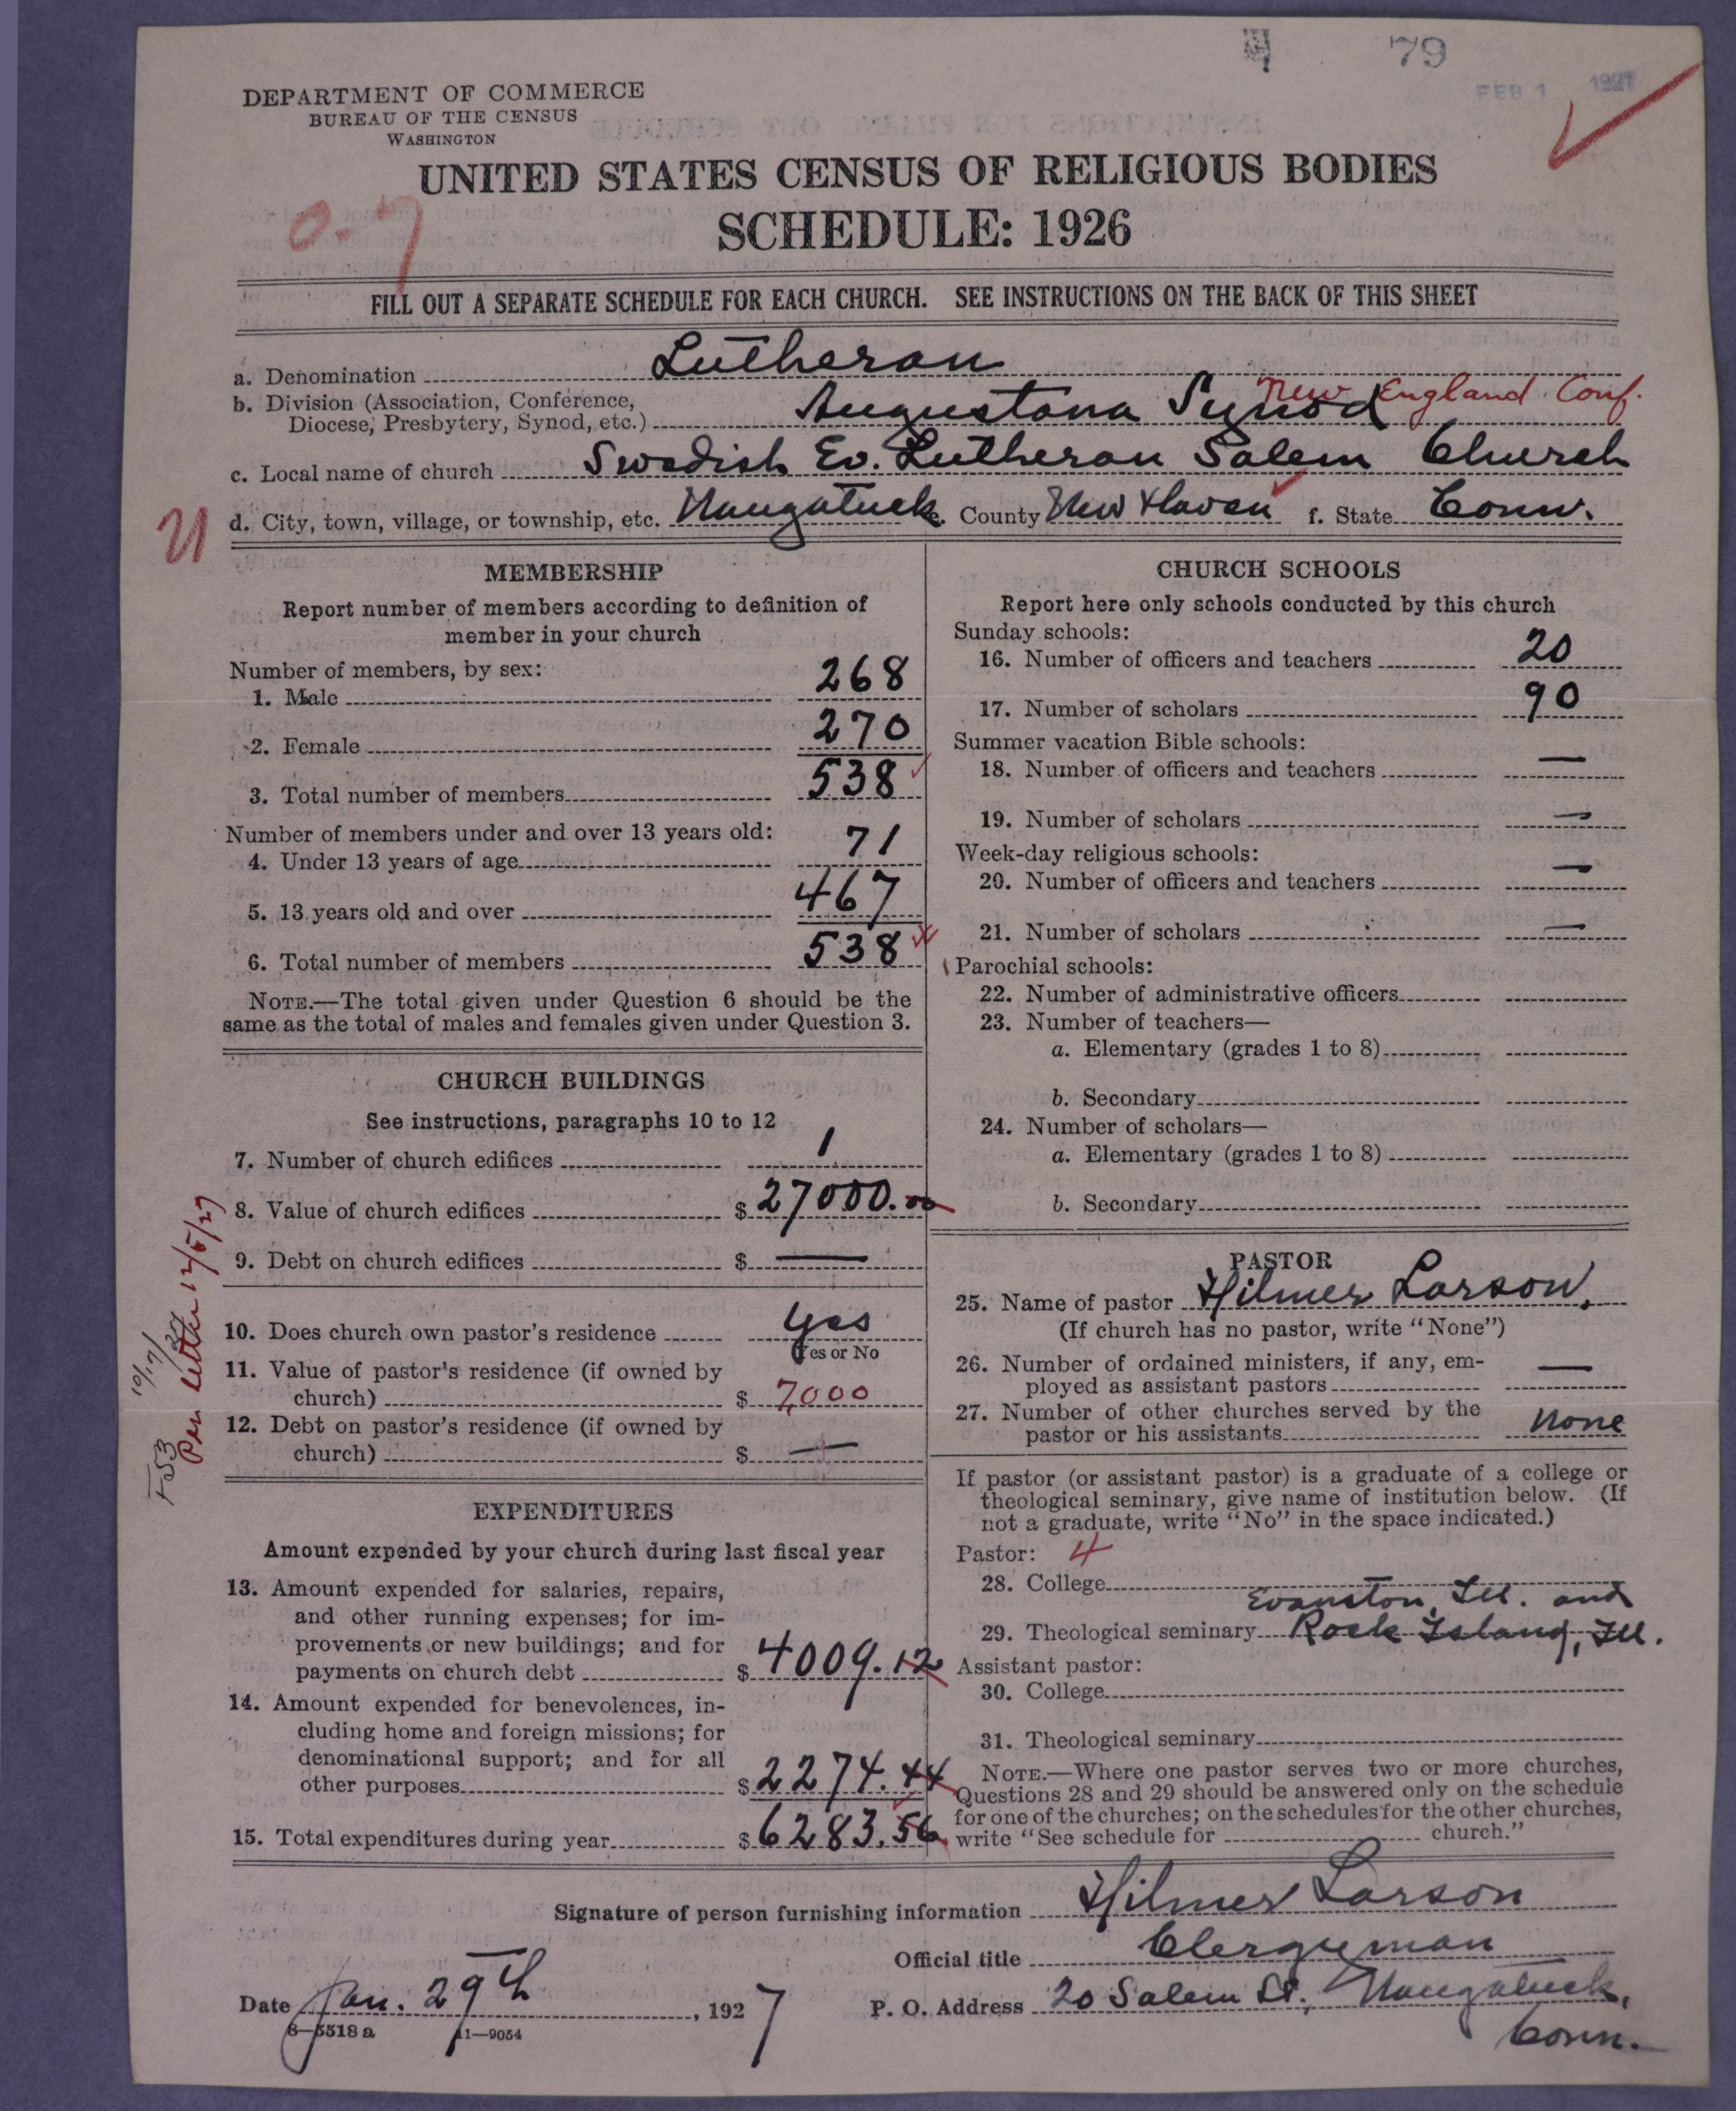 79
FEB 1 1927
DEPARTMENT OF COMMERCE
BUREAU OF THE CENSUS
WASHINGTON
UNITED STATES CENSUS OF RELIGIOUS BODIES
SCHEDULE: 1926
0-7
FILL OUT A SEPARATE SCHEDULE FOR EACH CHURCH. SEE INSTRUCTIONS ON THE BACK OF THIS SHEET
a. Denomination Lutheran
b. Division (Association, Conference, New England Conf.
Diocese, Presbytery, Synod, etc.) Augustana Synod
c. Local name of church Swedish Ev. Lutheran Salem Church
d. City, town, village, or township, etc. Naugatuck e. County New Haven f. State Conn.
MEMBERSHIP
Report number of members according to definition of
member in your church
Number of members, by sex:
1. Male 268
2. Female 270
3. Total number of members 538
Number of members under and over 13 years old:
4. Under 13 years of age 71
5. 13 years old and over 467
6. Total number of members 538
NOTE.—The total given under Question 6 should be the
same as the total of males and females given under Question 3.
CHURCH BUILDINGS
See instructions, paragraphs 10 to 12
7. Number of church edifices 1
8. Value of church edifices $ 27000.00
9. Debt on church edifices $ —
10. Does church own pastor's residence yes
Yes or No
11. Value of pastor's residence (if owned by
church) $ 7,000
12. Debt on pastor's residence (if owned by
church) $ —
Per letter 12/5/27
10/17/27
F53
EXPENDITURES
Amount expended by your church during last fiscal year
13. Amount expended for salaries, repairs,
and other running expenses; for im-
provements or new buildings; and for
payments on church debt $ 4009.12
14. Amount expended for benevolences, in-
cluding home and foreign missions; for
denominational support; and for all
other purposes $ 2274.44
15. Total expenditures during year $ 6283.56
CHURCH SCHOOLS
Report here only schools conducted by this church
Sunday schools:
16. Number of officers and teachers 20
17. Number of scholars 90
Summer vacation Bible schools:
18. Number of officers and teachers —
19. Number of scholars —
Week-day religious schools:
20. Number of officers and teachers —
21. Number of scholars —
Parochial schools:
22. Number of administrative officers
23. Number of teachers—
a. Elementary (grades 1 to 8)
b. Secondary
24. Number of scholars—
a. Elementary (grades 1 to 8)
b. Secondary
PASTOR
25. Name of pastor Hilmer Larson.
(If church has no pastor, write "None")
26. Number of ordained ministers, if any, em-
ployed as assistant pastors —
27. Number of other churches served by the
pastor or his assistants none
If pastor (or assistant pastor) is a graduate of a college or
theological seminary, give name of institution below. (If
not a graduate, write "No" in the space indicated.)
Pastor: 4
28. College
Evanston, Ill. and
29. Theological seminary Rock Island, Ill.
Assistant pastor:
30. College
31. Theological seminary
NOTE.—Where one pastor serves two or more churches,
Questions 28 and 29 should be answered only on the schedule
for one of the churches; on the schedules for the other churches,
write "See schedule for church."
Signature of person furnishing information Hilmer Larson
Official title Clergyman
Date Jan. 29th, 1927 P. O. Address 20 Salem St., Naugatuck,
Conn.
8—5518 a 11—9054